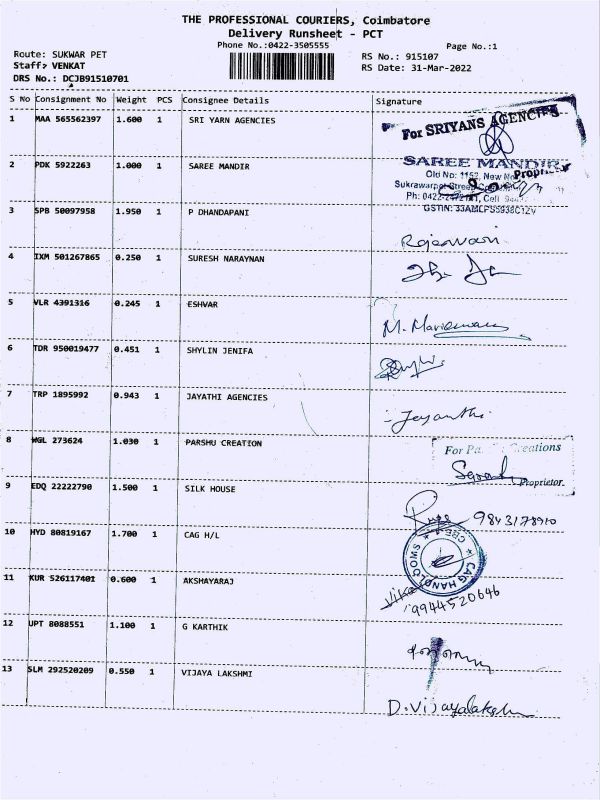 THE PROFESSIONAL COURIERS, Coimbatore
Delivery Runsheet - PCT
Phone No.:0422-3505555
Page No.:1
Route: SUKWAR PET
Staff: VENKAT
DRS No.: DCJB91510701
RS No.: 915107
RS Date: 31-Mar-2022
S No Consignment No Weight PCS Consignee Details Signature
1 MAA 565562397 1.600 1 SRI YARN AGENCIES
For SRIYANS AGENCIES
2 PDK 5922263 1.000 1 SAREE MANDIR
SAREE MANDIR
Old No: 1152, New No
Proprietor
Sukrawarpet Street
Ph: 0422-2472141, Cell
GSTIN: 33AMLPS5938C1ZV
3 SPB 50097958 1.950 1 P DHANDAPANI
Rajeswari
4 IXM 501267865 0.250 1 SURESH NARAYNAN
5 VLR 4391316 0.245 1 ESHVAR
M. Mariammal
6 TDR 950019477 0.451 1 SHYLIN JENIFA
7 TRP 1895992 0.943 1 JAYATHI AGENCIES
Jeyanthi
8 WGL 273624 1.030 1 PARSHU CREATION
For Pa Creations
Proprietor
9 EDQ 22222790 1.500 1 SILK HOUSE
9843178910
10 HYD 80819167 1.700 1 CAG H/L
CAG HANDLOOMS CBE
11 KUR 526117401 0.600 1 AKSHAYARAJ
9944520646
12 UPT 8088551 1.100 1 G KARTHIK
13 SLM 292520209 0.550 1 VIJAYA LAKSHMI
D. Vijayalakshmi